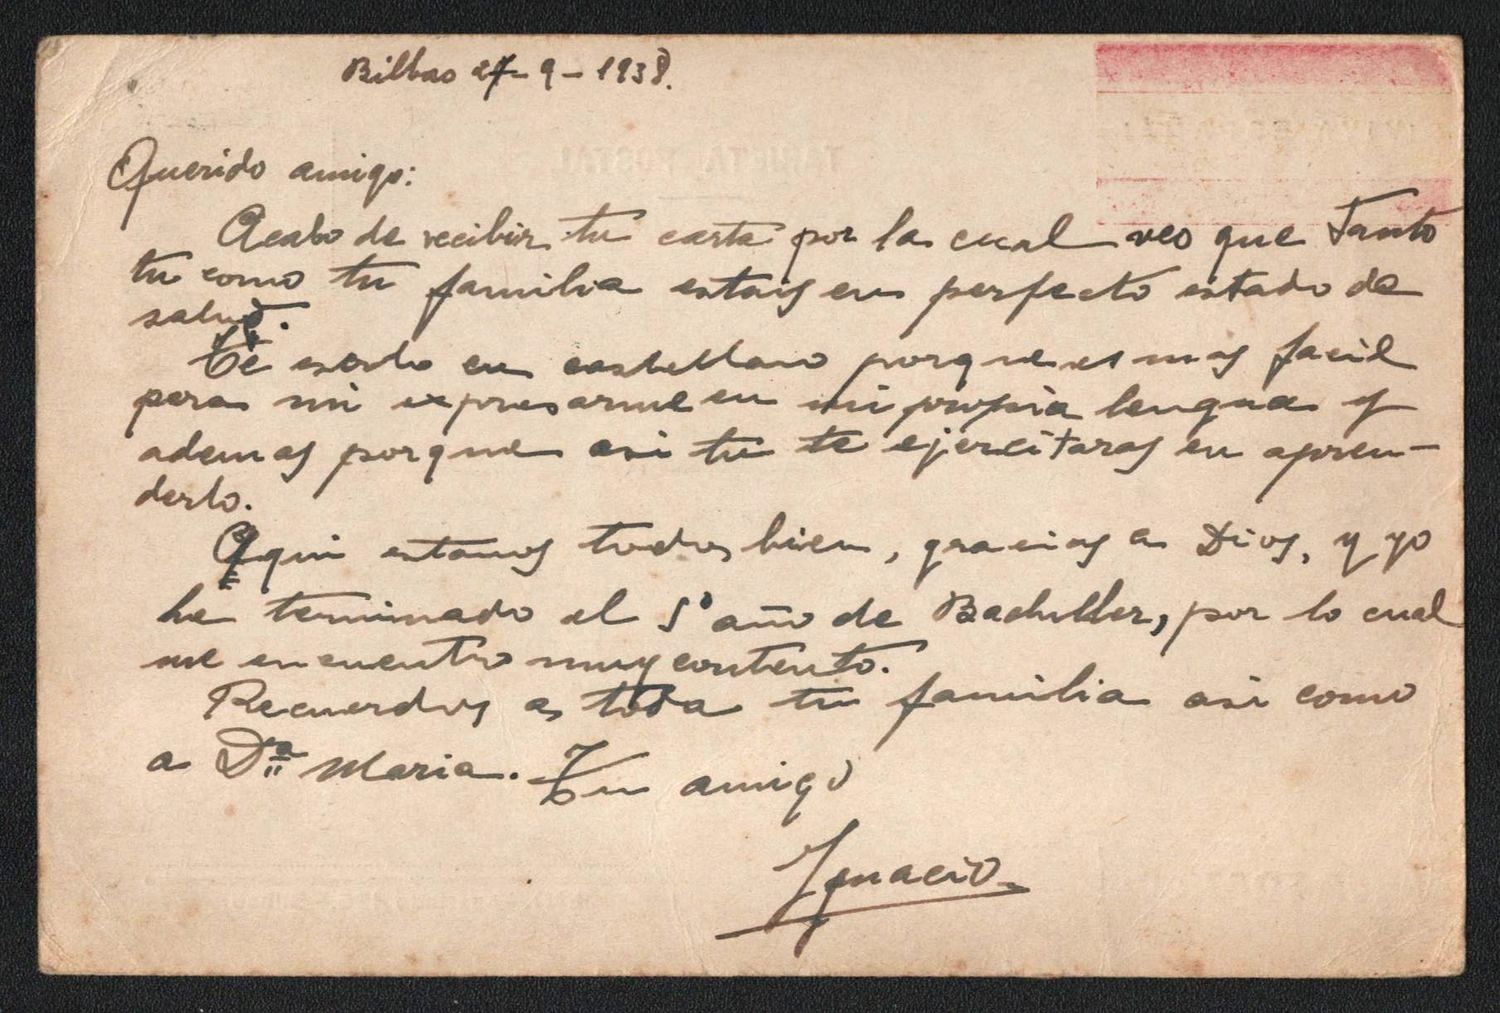 Bilbao 27-9-1938.
Querido amigo:
Acabo de recibir tu carta por la cual veo que tanto
tu como tu familia estais en perfecto estado de
salud.
Te escribo en castellano porque es mas facil
para mi expresarme en mi propia lengua y
ademas porque asi tu te ejercitaras en apren-
derlo.
Aqui estamos todos bien, gracias a Dios, y yo
he terminado el 5º año de Bachiller, por lo cual
me encuentro muy contento.
Recuerdos a toda tu familia asi como
a Dª Maria. Tu amigo
Ignacio